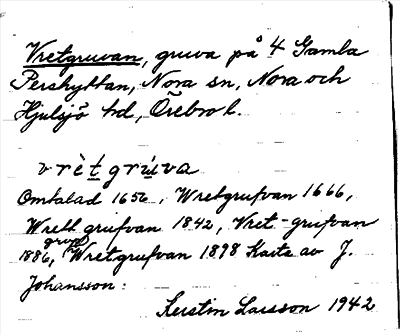 Vretgruvan, gruva på 4 Gamla
Pershyttan, Nora sn, Nora och
Hjulsjö hd, Örebro l.
vrètgrúva
Omtalad 1656, Wretgrufvan 1666,
Wrett grufvan 1842, Vret-grufvan
1886, Wretgrufvan 1898 Karta av J.
Johansson.
Kerstin Larsson 1942